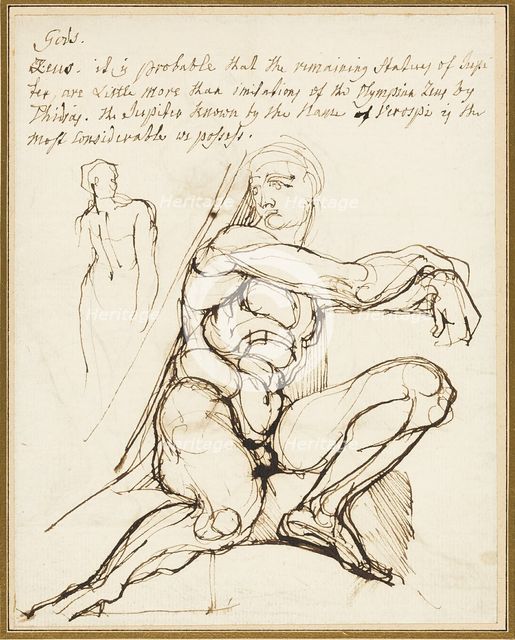 Gods.
Zeus. it is probable that the remaining Statues of Jupi
ter, are Little more than imitations of the Olympian Zeus by
Phidias. the Jupiter known by the Name of Verospi is the
most Considerable we possess.
Heritage
Heritage
Heritage
Heritage
Heritage
Heritage
Heritage